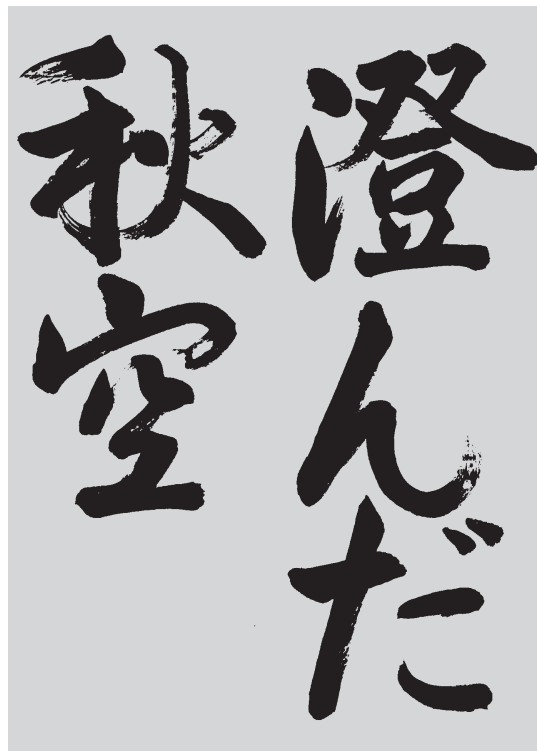 澄んだ
秋空